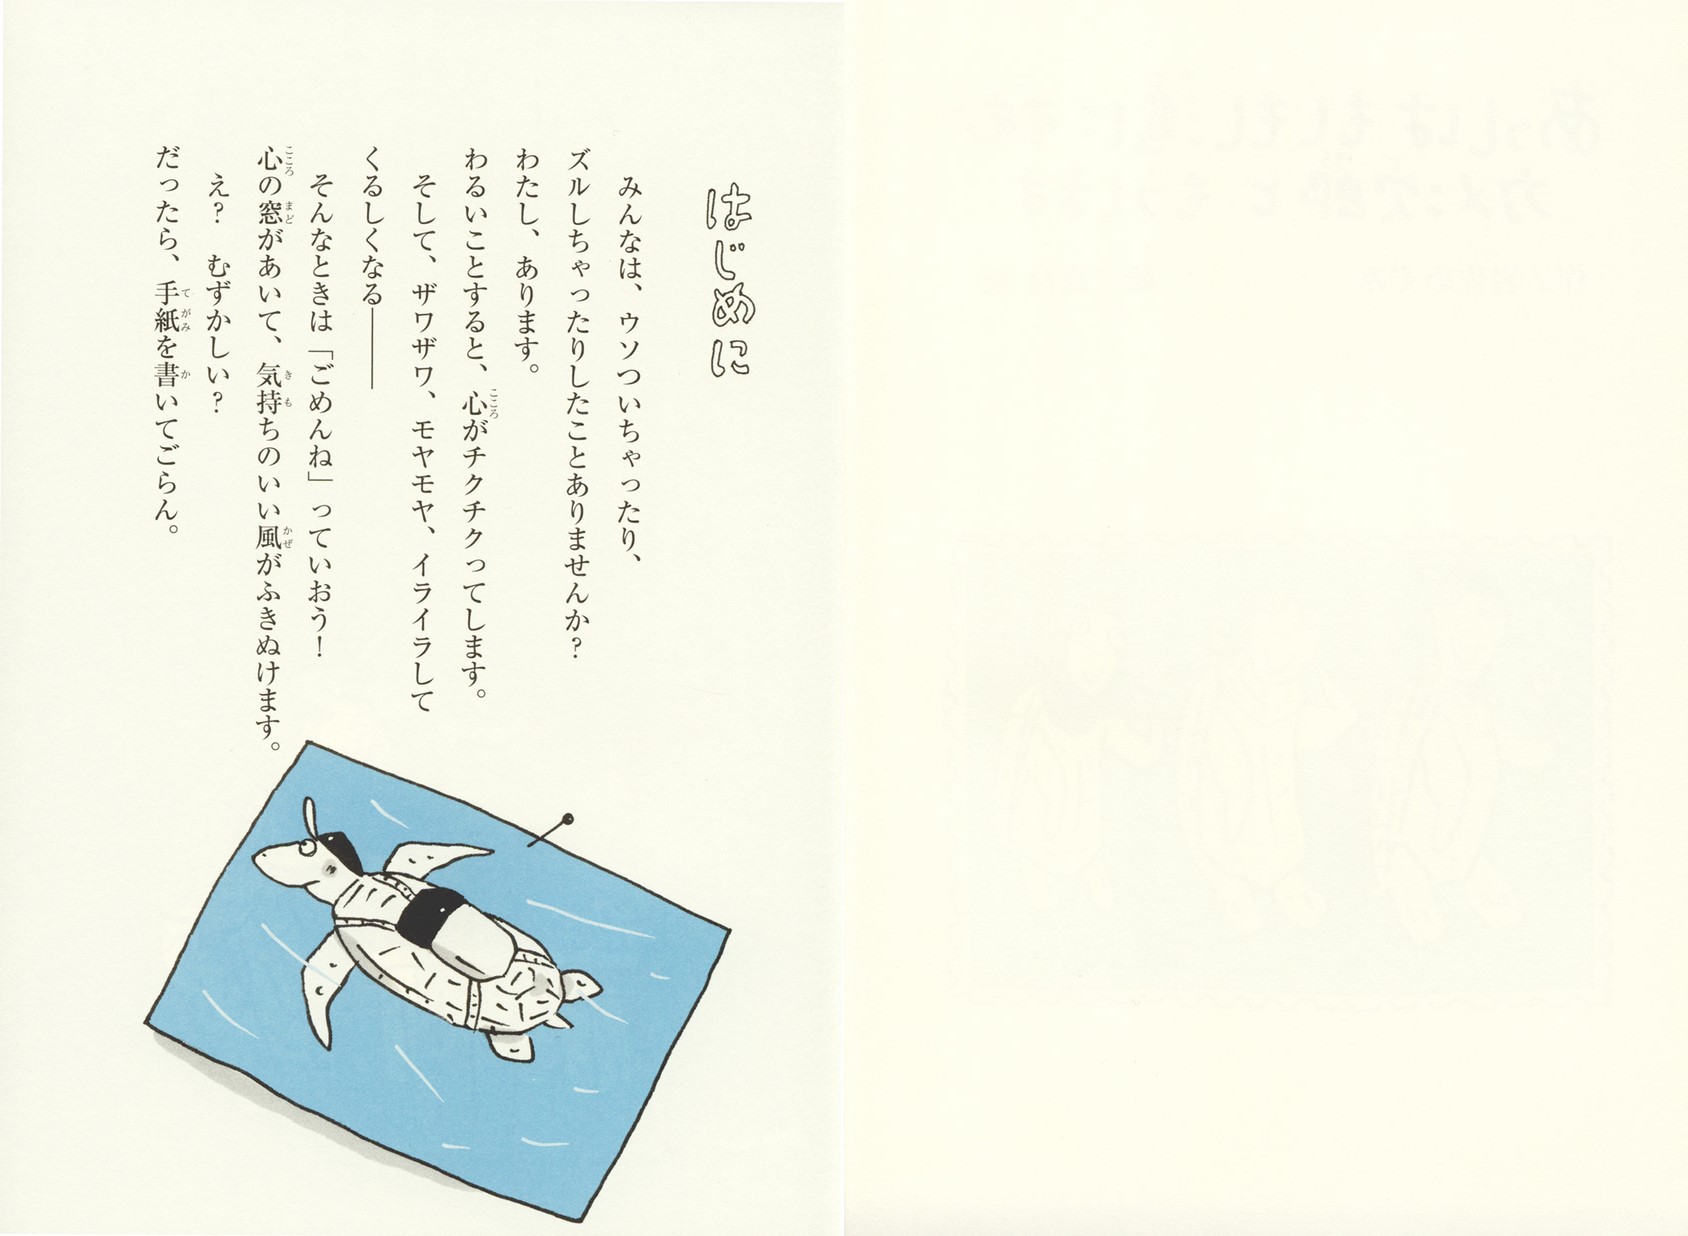 はじめに
みんなは、ウソついちゃったり、
ズルしちゃったりしたことありませんか？
わたし、あります。
わるいことすると、心がチクチクってします。
そして、ザワザワ、モヤモヤ、イライラして
くるしくなる———
そんなときは「ごめんね」っていおう！
心の窓があいて、気持ちのいい風がふきぬけます。
え？　むずかしい？
だったら、手紙を書いてごらん。